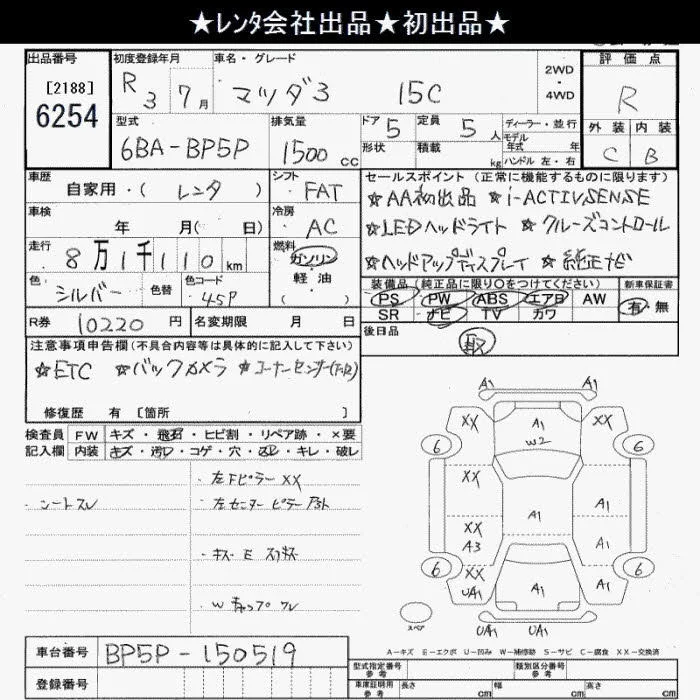 ★ﾚﾝﾀ会社出品★初出品★
出品番号 初度登録年月 車名・グレード 2WD・4WD 評価点
[2188] 6254 R3 7月 マツダ3 15C R
型式 排気量 ドア 定員 ディーラー・並行 外装 内装
6BA-BP5P 1500cc 5 5人 モデル年式 年 C B
形状 積載 kg ハンドル 左・右
車歴 シフト セールスポイント（正常に機能するものに限ります）
自家用・( レンタ ) FAT ☆AA初出品 ☆i-ACTIVSENSE
車検 冷房 ☆LEDヘッドライト ☆クルーズコントロール
年 月( 日) AC
走行 燃料 ☆ヘッドアップディスプレイ ☆純正ナビ
8万1千110km ガソリン
軽油
( )
色 色替 色コード 装備品（純正品に限り○をつけてください） 新車保証書
シルバー 45P PS PW ABS エアB AW 有・無
SR ナビ TV カワ
R券 10220円 名変期限 月 日 後日品
取
注意事項申告欄（不具合内容等は具体的に記入して下さい）
☆ETC ☆バックカメラ ☆コーナーセンサー(F・R)
修復歴 有 [箇所 ]
検査員 FW キズ・飛石・ヒビ割・リペア跡・×要
記入欄 内装 キズ・汚れ・コゲ・穴・凹・キレ・破レ
・シートスレ
・左Fピラー XX
・左センターピラー
・キズ E
・W
A1 A1
XX A1 XX
W2
6 6
XX
A1 A1
XX
A3
6 6
XX A1 A1
UA1
スペア UA1 UA1
A－キズ E－エクボ U－凹み W－補修跡 S－サビ C－腐食 XX－交換済
車台番号 BP5P-150519
登録番号
型式指定番号 参考 類別区分番号 参考
車庫証明用 参考 長さ cm 幅 cm 高さ cm